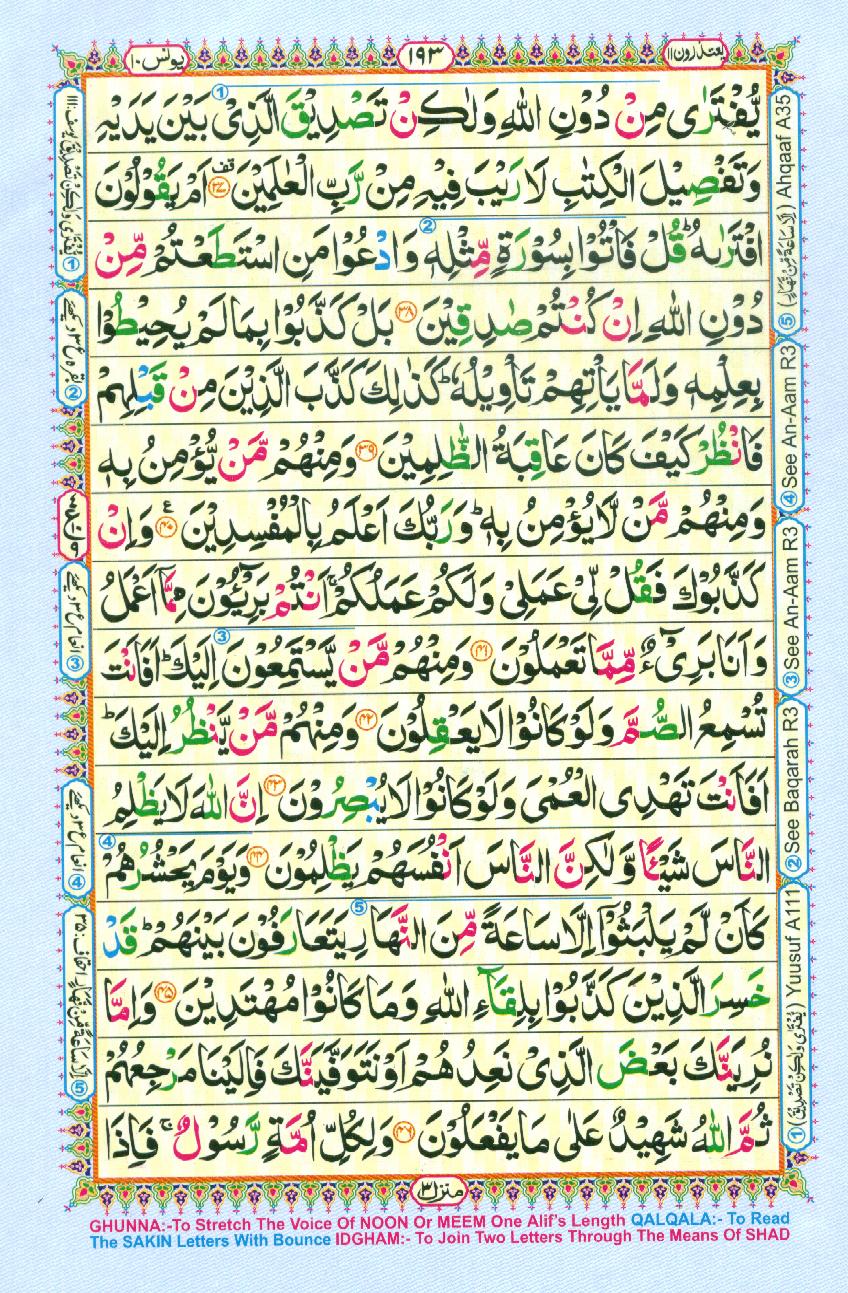 یونس ۱۰
۱۹۳
یعتذرون ۱۱
یُّفْتَرٰی مِنْ دُوْنِ اللّٰهِ وَلٰكِنْ تَصْدِیْقَ الَّذِیْ بَیْنَ یَدَیْهِ
وَتَفْصِیْلَ الْكِتٰبِ لَا رَیْبَ فِیْهِ مِنْ رَّبِّ الْعٰلَمِیْنَ ۟ۛ۳۷ اَمْ یَقُوْلُوْنَ
افْتَرٰىهُ ؕ قُلْ فَاْتُوْا بِسُوْرَةٍ مِّثْلِهٖ وَادْعُوْا مَنِ اسْتَطَعْتُمْ مِّنْ
دُوْنِ اللّٰهِ اِنْ كُنْتُمْ صٰدِقِیْنَ ۳۸ بَلْ كَذَّبُوْا بِمَا لَمْ یُحِیْطُوْا
بِعِلْمِهٖ وَلَمَّا یَاْتِهِمْ تَاْوِیْلُهٗ ؕ كَذٰلِكَ كَذَّبَ الَّذِیْنَ مِنْ قَبْلِهِمْ
فَانْظُرْ كَیْفَ كَانَ عَاقِبَةُ الظّٰلِمِیْنَ ۳۹ وَمِنْهُمْ مَّنْ یُّؤْمِنُ بِهٖ
وَمِنْهُمْ مَّنْ لَّا یُؤْمِنُ بِهٖ ؕ وَرَبُّكَ اَعْلَمُ بِالْمُفْسِدِیْنَ ۴۰ وَاِنْ
كَذَّبُوْكَ فَقُلْ لِّیْ عَمَلِیْ وَلَكُمْ عَمَلُكُمْ ۚ اَنْتُمْ بَرِیْٓـُٔوْنَ مِمَّاۤ اَعْمَلُ
وَاَنَا بَرِیْٓءٌ مِّمَّا تَعْمَلُوْنَ ۴۱ وَمِنْهُمْ مَّنْ یَّسْتَمِعُوْنَ اِلَیْكَ ؕ اَفَاَنْتَ
تُسْمِعُ الصُّمَّ وَلَوْ كَانُوْا لَا یَعْقِلُوْنَ ۴۲ وَمِنْهُمْ مَّنْ یَّنْظُرُ اِلَیْكَ ؕ
اَفَاَنْتَ تَهْدِی الْعُمْیَ وَلَوْ كَانُوْا لَا یُبْصِرُوْنَ ۴۳ اِنَّ اللّٰهَ لَا یَظْلِمُ
النَّاسَ شَیْـًٔا وَّلٰكِنَّ النَّاسَ اَنْفُسَهُمْ یَظْلِمُوْنَ ۴۴ وَیَوْمَ یَحْشُرُهُمْ
كَاَنْ لَّمْ یَلْبَثُوْۤا اِلَّا سَاعَةً مِّنَ النَّهَارِ یَتَعَارَفُوْنَ بَیْنَهُمْ ؕ قَدْ
خَسِرَ الَّذِیْنَ كَذَّبُوْا بِلِقَآءِ اللّٰهِ وَمَا كَانُوْا مُهْتَدِیْنَ ۴۵ وَاِمَّا
نُرِیَنَّكَ بَعْضَ الَّذِیْ نَعِدُهُمْ اَوْ نَتَوَفَّیَنَّكَ فَاِلَیْنَا مَرْجِعُهُمْ
ثُمَّ اللّٰهُ شَهِیْدٌ عَلٰی مَا یَفْعَلُوْنَ ۴۶ وَلِكُلِّ اُمَّةٍ رَّسُوْلٌ ۚ فَاِذَا
منزل ۳
① (یُفْتَرٰی وَلٰكِنْ تَصْدِیْقَ) Yuusuf A111
② See Baqarah R3
③ See An-Aam R3
④ See An-Aam R3
⑤ (اِلَّا سَاعَةً مِّنْ نَّهَارٍ) Ahqaaf A35
GHUNNA:-To Stretch The Voice Of NOON Or MEEM One Alif's Length QALQALA:- To Read
The SAKIN Letters With Bounce IDGHAM:- To Join Two Letters Through The Means Of SHAD